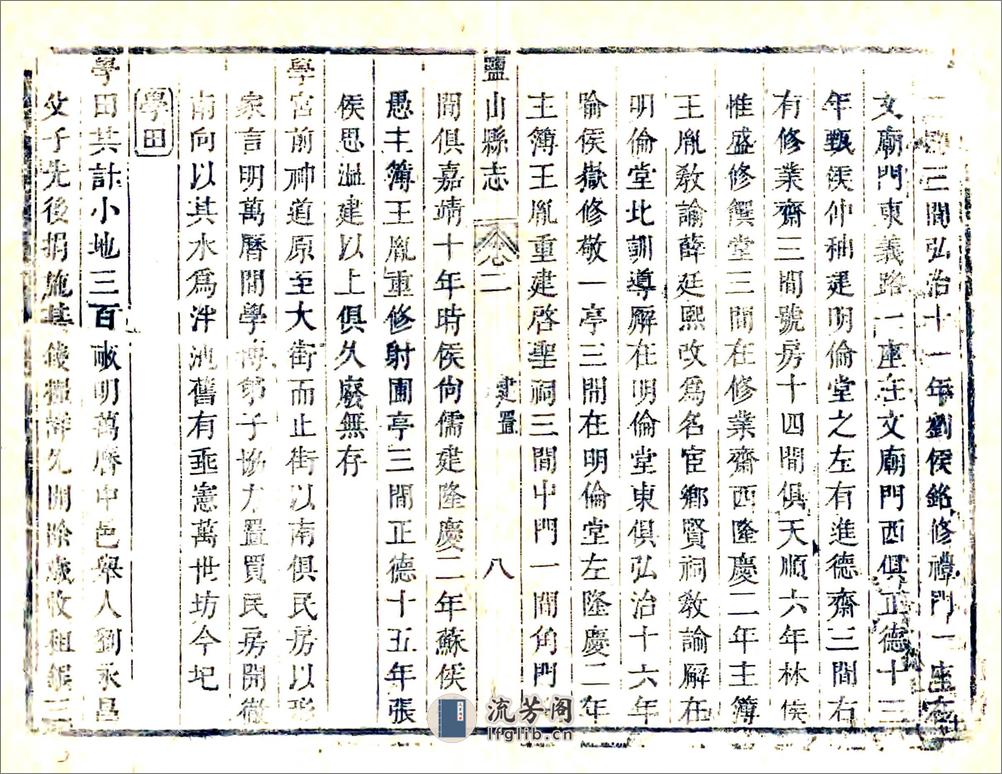 三間弘治十一年劉侯銘修禮門一座在
文廟門東義路一座在文廟門西俱正德十三
年甄侯仲和建明倫堂之左有進德齋三間右
有修業齋三間號房十四間俱天順六年林侯
惟盛修饌堂三間在修業齋西隆慶二年主簿
王胤教諭薛廷熙改為名宦鄉賢祠教諭廨在
明倫堂北訓導廨在明倫堂東俱弘治十六年
喻侯嶽修敬一亭三間在明倫堂左隆慶二年
主簿王胤重建啓聖祠三間中門一間角門
鹽山縣志 卷二 建置 八
間俱嘉靖十年時侯尚儒建隆慶二年蘇侯
愚主簿王胤重修射圃亭三間正德十五年張
侯思溫建以上俱久廢無存
學宮前神道原至大街而止街以南俱民房以形
家言明萬曆間學博弟子協力置買民房開徹
南向以其水為泮池舊有垂憲萬世坊今圮
學田
學田共計小地三百畝明萬曆中邑舉人劉永昌
父子先後捐施其錢糧開除歲收租銀三
流芳阁
lfglib.cn